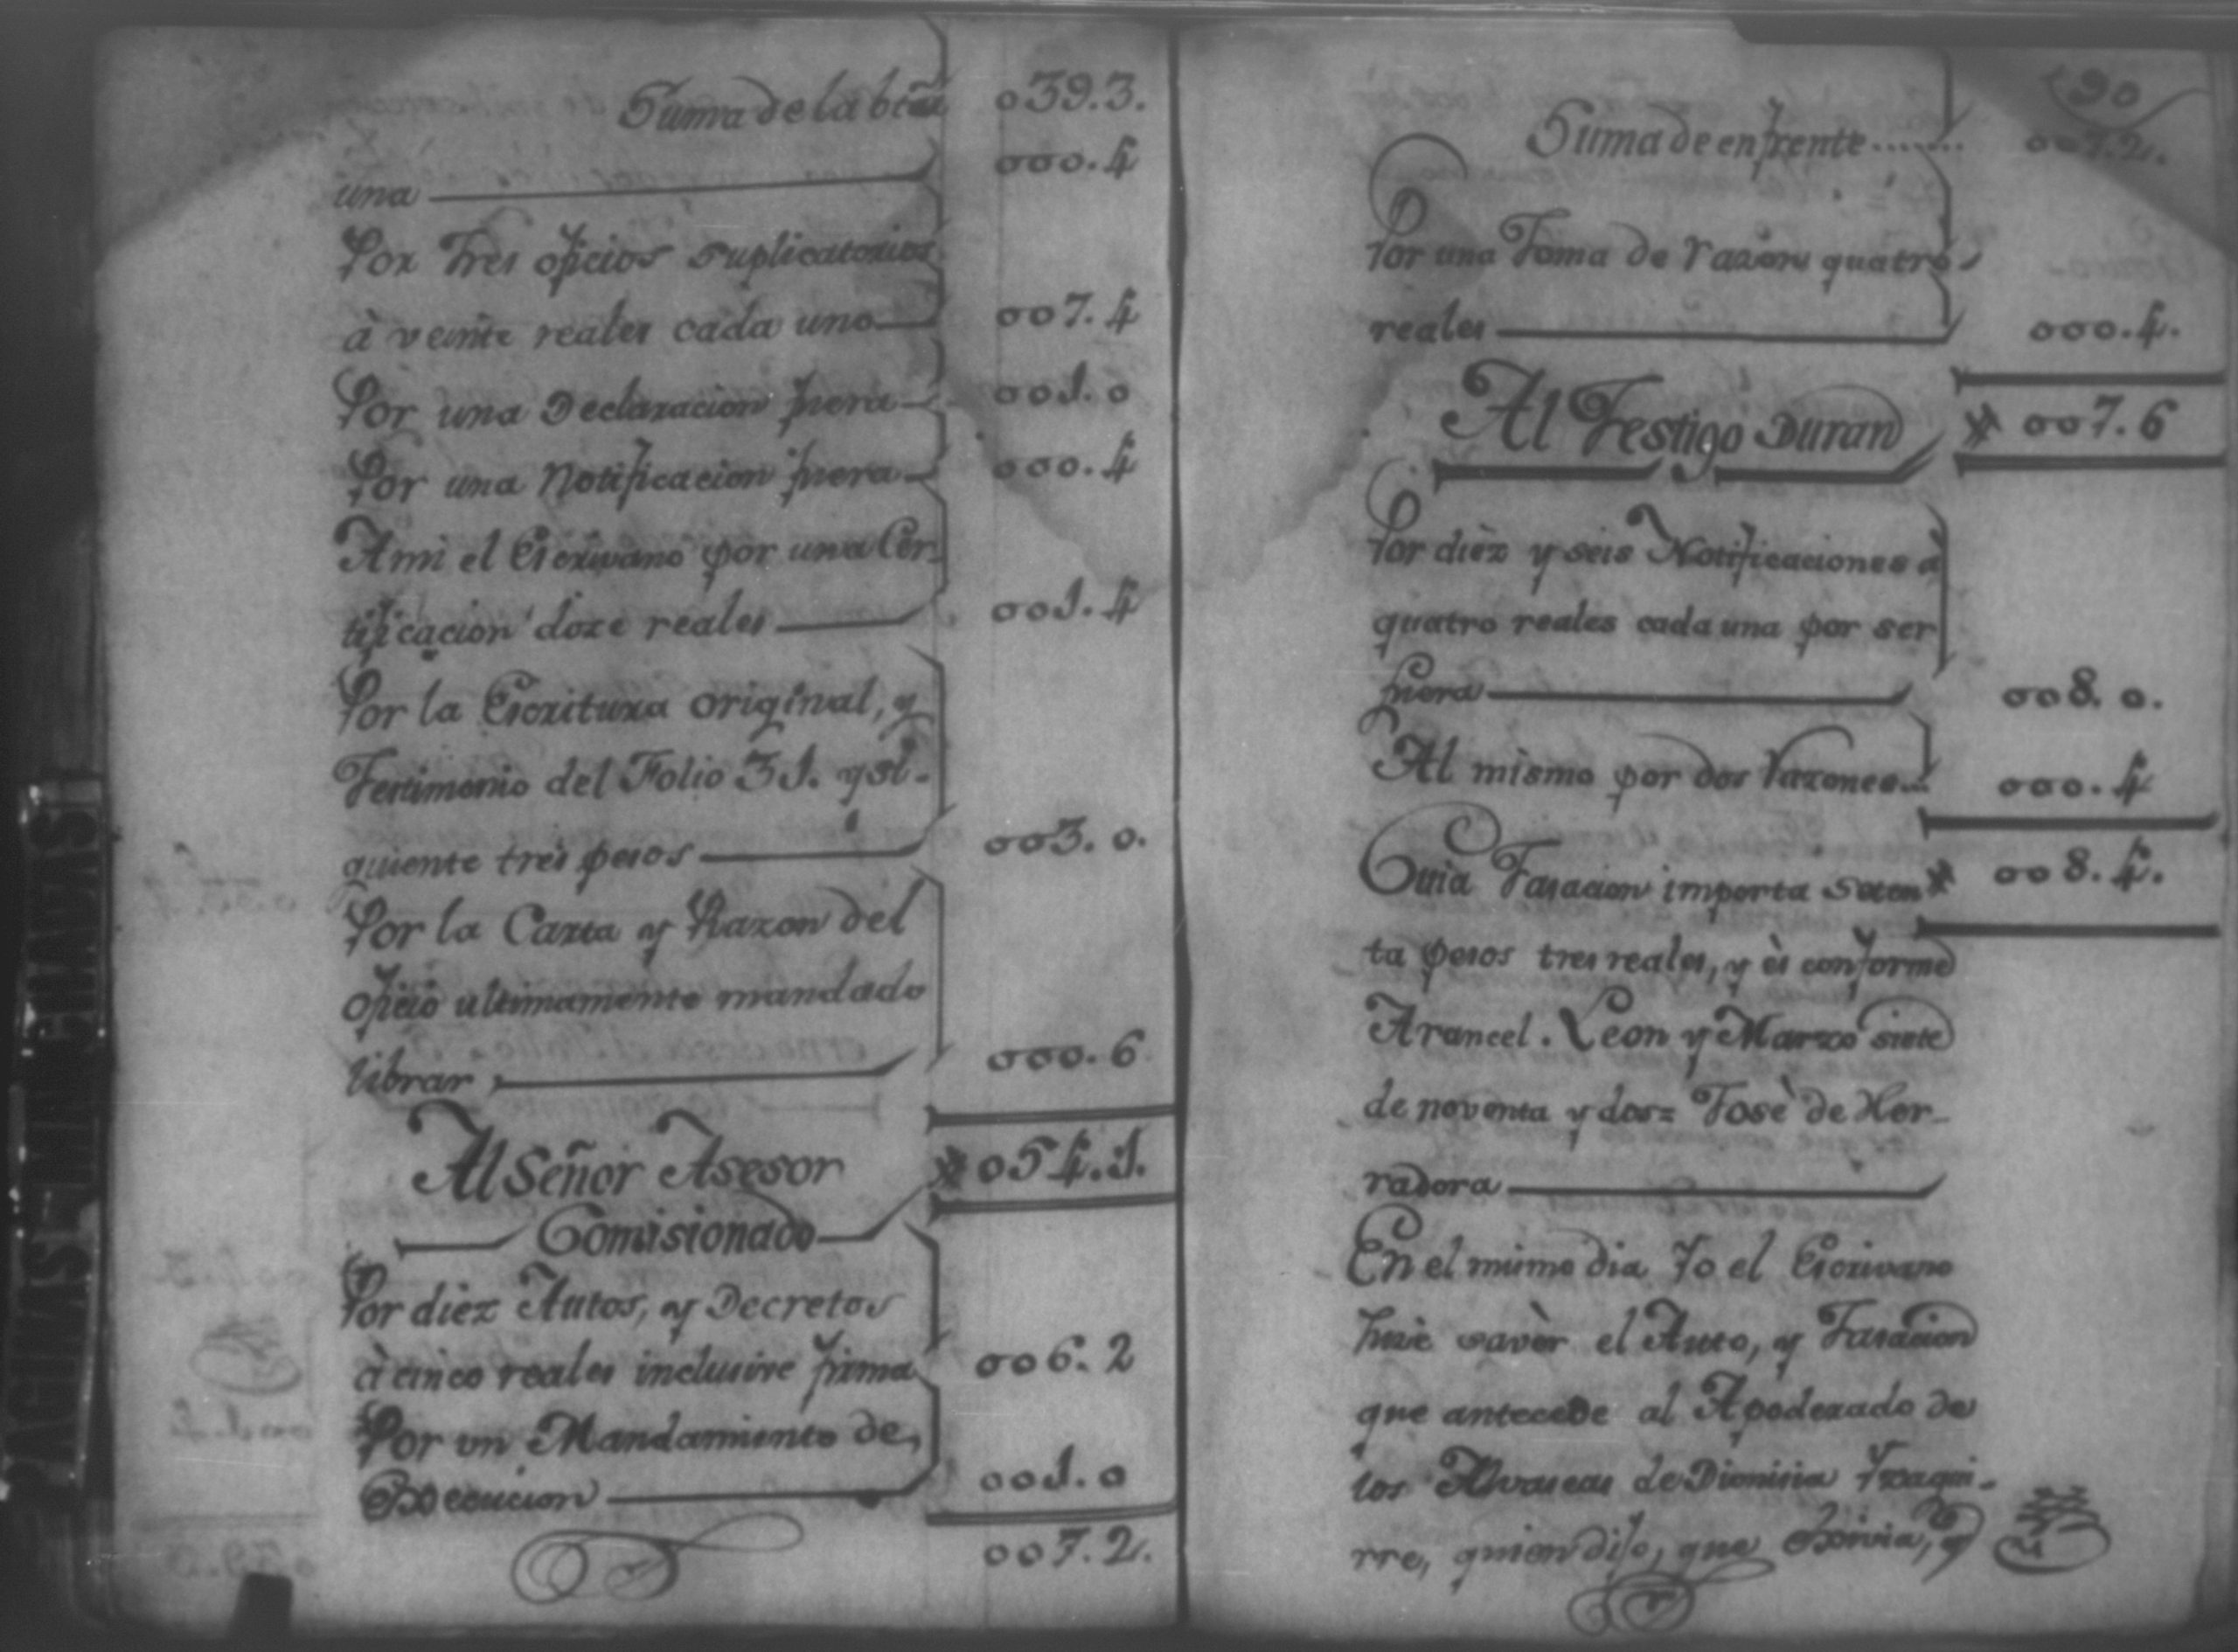 Suma de la bta 039.3.
una 000.4
Por tres oficios suplicatorios
à veinte reales cada uno 007.4
Por una Declaracion fuera 001.0
Por una Notificacion fuera 000.4
A mi el Escrivano por una Cer-
tificacion doze reales 001.4
Por la Escritura original, y
Testimonio del Folio 31. y si-
guiente tres pesos 003.0.
Por la Carta y Razon del
oficio ultimamente mandado
librar 000.6
Al Señor Asesor 054.1.
Comisionado
Por diez Autos, y Decretos
à cinco reales inclusive firma 006.2
Por un Mandamiento de
Execucion 001.0
007.2.
190
Suma de enfrente........ 007.2.
Por una Toma de razon quatro
reales 000.4.
Al Testigo Duran 007.6
Por diéz y seis Notificaciones à
quatro reales cada una por ser
fuera 008.0.
Al mismo por dos razones... 000.4
Cuia Tasacion importa seten 008.4.
ta pesos tres reales, y és conforme
Arancel. Leon y Marzo siete
de noventa y dos= Josè de Her-
radora
En el mismo dia Yo el Escrivano
hize savèr el Auto, y Tasacion
que antecede al Apoderado de
los Alvaseas de Dionisia Yzagui-
rre, quien dijo, que Obivia, y